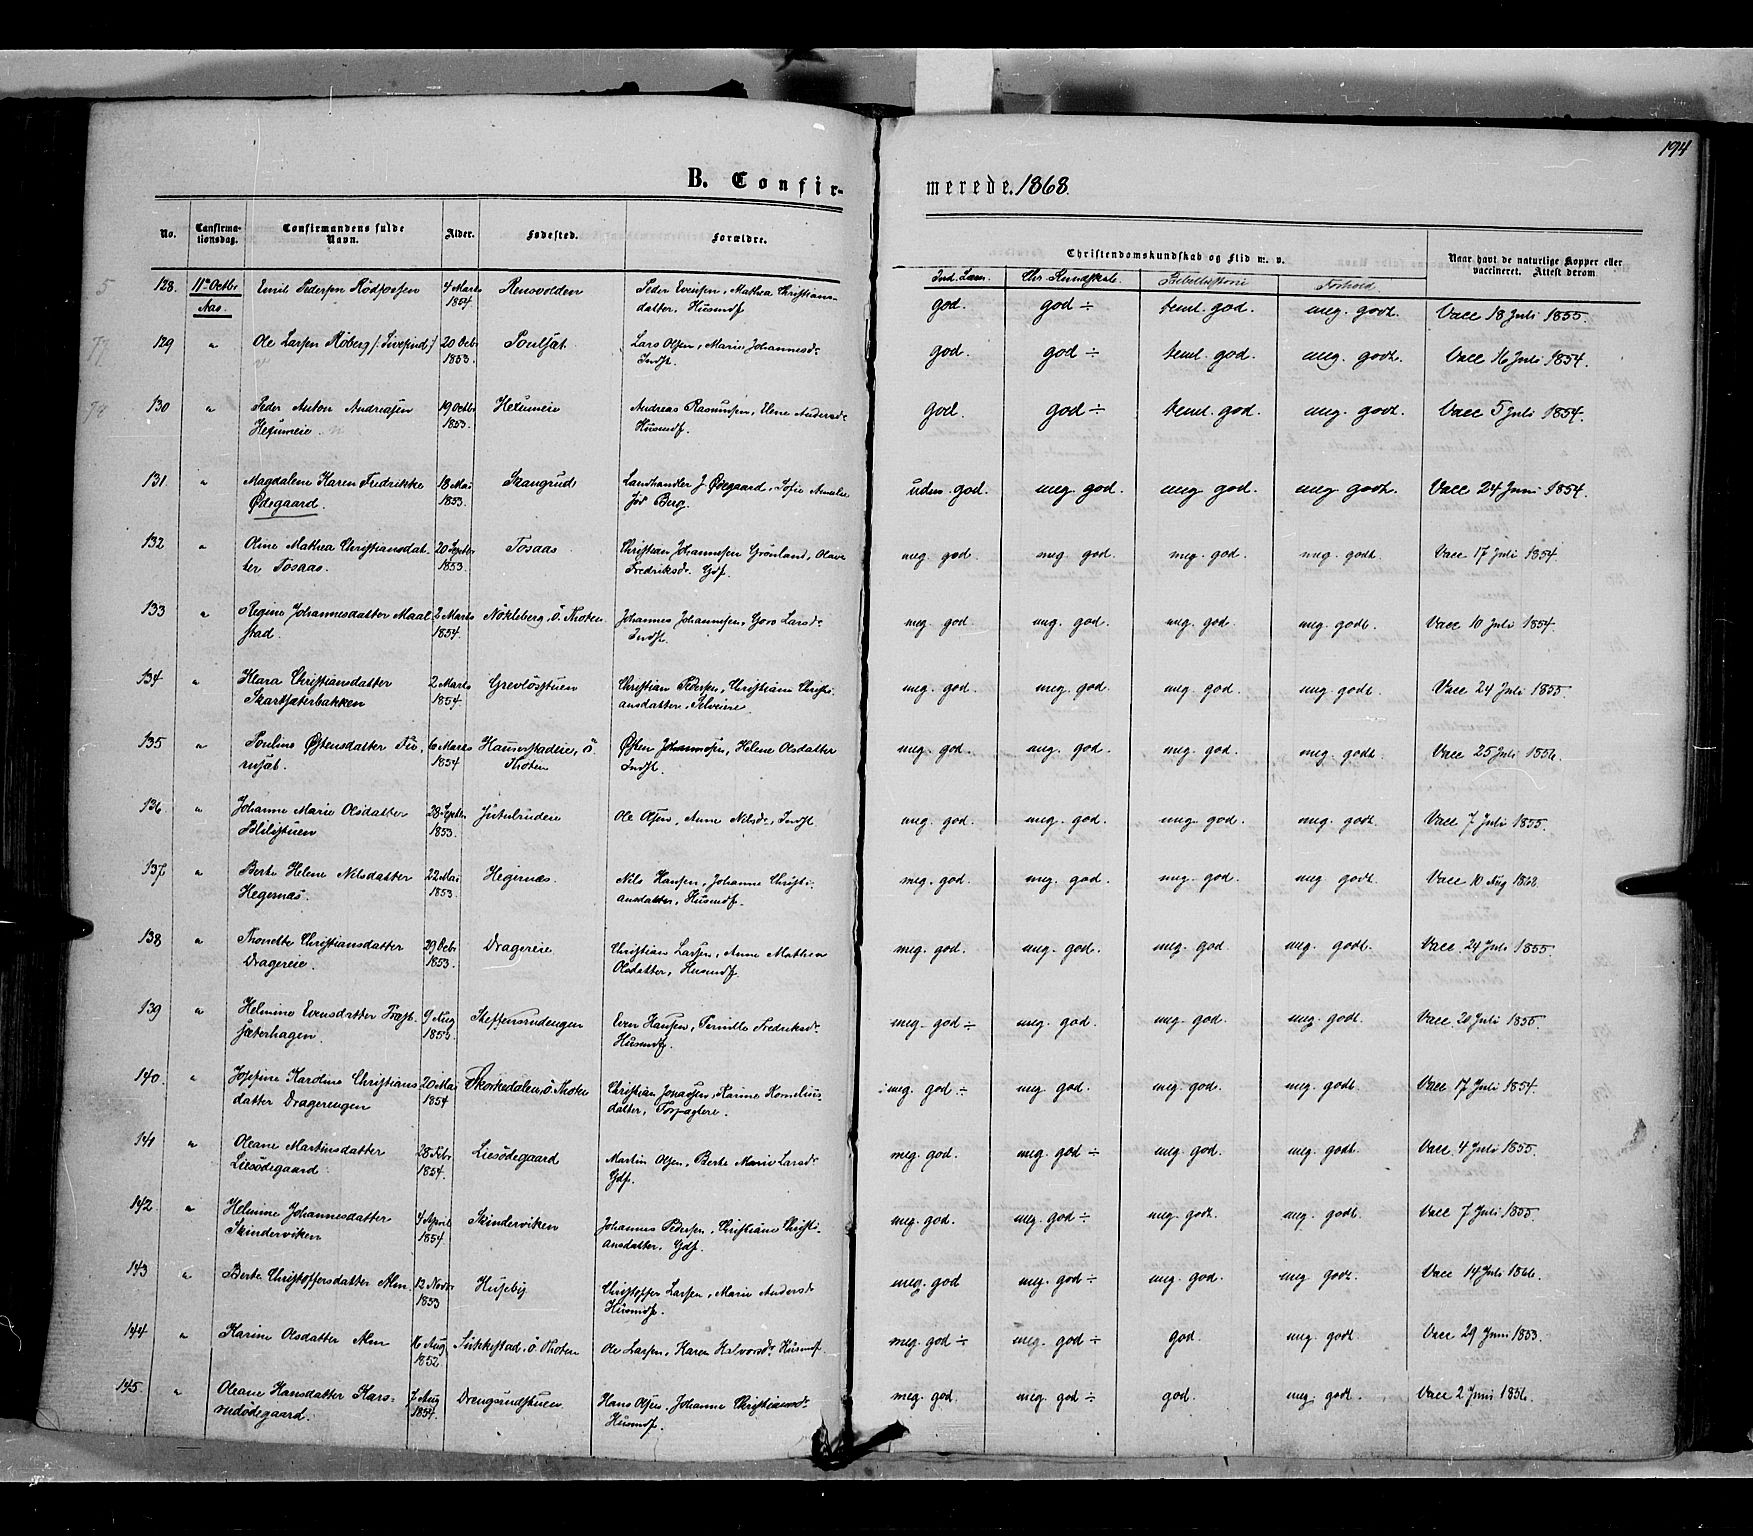 194
B. Confir- merede. 1868.
No. Confirma- Confirmandens fulde Alder. Fødested. Forældre. Christendomskundskab og Flid m. v. Naar havt de naturlige Kopper eller
tionsdag. Navn. vaccineret. Attest derom.
Ind. Læsn. Chr. Kundskab. Bibelhistorie Forhold.
5 128. 11te Octbr Emil Pedersen Rödfossen 4 Marts Rensvolden Peder Evensen, Mathea Christians- god. god ÷ teml. god. meg. godt. Vacc 18 Juli 1855.
Aas. 1854 datter. Husmdf
129 " Ole Larsen Röberg 20 Octb Poulsæt. Lars Olsen, Marie Johannesdr god. god ÷ teml. god. meg. godt. Vacc 16 Juli 1854.
1853. Indst.
130 " Peder Anton Andreasen 19 Octb Hexumeie Andreas Rasmussen, Elene Andersdr god. god ÷ teml. god. meg. godt. Vacc 5 Juli 1854.
Hexumeie. 1853. Husmdf.
131. " Magdalene Karen Fredrikke 18 Mai Skangrud Landhandler J Ødegaard, Sofie Amalie uden. god. meg god. meg god. meg godt. Vacc 24 Juni 1854.
Ødegaard. 1853. Berg.
132 " Oline Mathea Christiansdat- 20 Septbr Tosaas. Christian Johannesen Grönland, Olave meg. god. meg god. meg. god. meg. godt. Vacc 17 Juli 1854
ter Tosaas. 1853. Fredriksdr. Gdf.
133 " Regine Johannesdatter Maal- 2 Marts Nökleberg, Ö. Thoten Johannes Johannesen, Goro Larsdr meg. god. meg. god. meg. god. meg. godt. Vacc 10 Juli 1854.
stad. 1854. Indst.
134 " Klara Christiansdatter 2 Marts Grevlösstuen Christian Pedersen, Christiane Christi- meg. god. meg. god. meg. god. meg. godt. Vacc 24 Juli 1855.
Skartsæterbakken 1854. ansdatter. Selveiere.
135 " Pouline Østensdatter Fu- 6 Marts Haugerstadeie, Ö. Østen Johannesen, Helene Olsdatter meg. god. meg. god. meg. god. meg. godt. Vacc 25 Juli 1856.
rusæt. 1854 Thoten Indst.
136 " Johanne Marie Olsdatter 28 Septbr Jutulrudeie Ole Olsen, Anne Nilsdr, Indst meg. god. meg. god. meg. god. meg. godt. Vacc 7 Juli 1855.
Blilistuen 1853.
137 " Berte Helene Nilsdatter 22 Mai Hegernæs. Nils Hansen, Johanne Christi- meg. god. meg. god. meg. god. meg godt. Vacc 10 Aug 1868.
Hegernæs. 1853. ansdatter, Husmdf.
138 " Thonette Christiansdatter 29 Octb. Dragereie Christian Larsen, Anne Mathea meg. god. meg. god. meg. god. meg. godt. Vacc. 24 Juli 1855.
Dragereie. 1853. Olsdatter, Husmdf.
139 " Helmine Evensdatter Præst- 9 Aug Steffensrudengen Even Hansen, Pernille Frederiksdr meg. god ÷ meg. god. meg. god. meg. godt. Vacc. 20 Juli 1855.
sæterhagen. 1853 Husmdf.
140. " Josefine Karoline Christians- 20 Mai Skorkedalen, Ö. Thoten Christian Jonassen, Karine Kornelius- meg. god ÷ meg god. meg god. meg. godt. Vacc 17 Juli 1854.
datter Dragerengen 1854 datter, Forpagtere.
141 " Oleane Martinsdatter 28 Febr Liesödegaard Martin Olsen, Berte Marie Larsdr meg. god. meg. god ÷ meg god. meg. godt. Vacc. 4 Juli 1855.
Liesödegaard. 1854. Gdf.
142. " Helmine Johannesdatter 4 April Skinderviken Johannes Pedersen, Christiane Christi- meg. god. meg. god ÷ meg. godt. meg. godt. Vacc 7 Juli 1855.
Skinderviken 1854 ansdatter. Gdf.
143 " Berte Christoffersdatter Alm. 12 Novbr Huseby Christoffer Larsen, Marie Andersdr meg. god meg. god ÷ meg. god. meg godt. Vacc 14 Juli 1866.
1853 Husmdf.
144 " Karine Olsdatter Alm 16 Aug Sukkestad, Ö. Thoten Ole Larsen, Karen Halvorsdr Husmdf meg. god ÷ meg. god ÷ god. meg. godt Vacc 29 Juni 1853.
1852
145. " Oleane Hansdatter Kars- 7 Aug Drengsrudstuen Hans Olsen, Johanne Christiansdr meg. god. meg. god ÷ god. meg. godt. Vacc 2 Juni 1856.
rudödegaard. 1854. Husmdf.